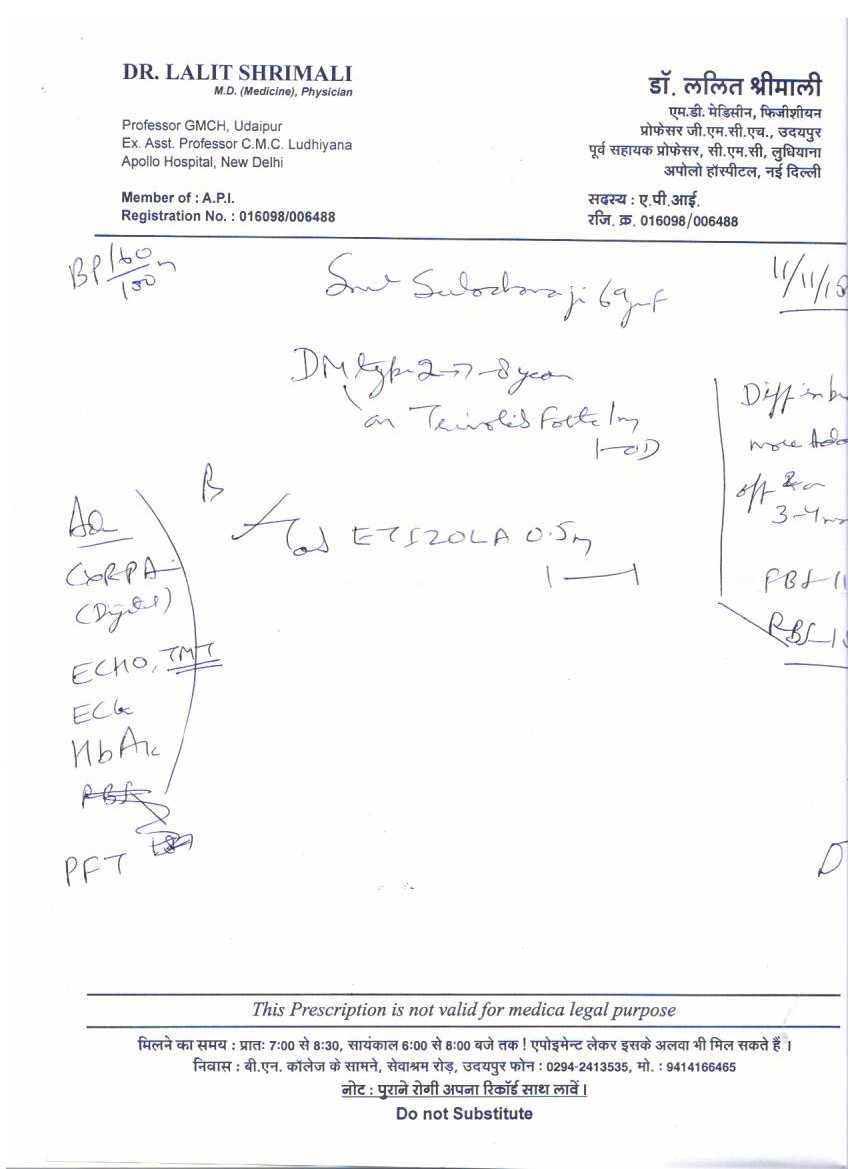 DR. LALIT SHRIMALI
M.D. (Medicine), Physician
Professor GMCH, Udaipur
Ex. Asst. Professor C.M.C. Ludhiyana
Apollo Hospital, New Delhi
Member of : A.P.I.
Registration No. : 016098/006488
डॉ. ललित श्रीमाली
एम.डी. मेडिसीन, फिजीशीयन
प्रोफेसर जी.एम.सी.एच., उदयपुर
पूर्व सहायक प्रोफेसर, सी.एम.सी, लुधियाना
अपोलो हॉस्पीटल, नई दिल्ली
सदस्य : ए.पी.आई.
रजि. क्र. 016098/006488
BP 160/100
11/11/18
DM type 2 → 7-8 year
on
ETIZOLA 0.5
Diff in
more
off & on
3-4
FBS
RBS
Ad
CXR PA
(Digital)
ECHO, TMT
ECG
HbA1c
PFT
D
This Prescription is not valid for medica legal purpose
मिलने का समय : प्रातः 7:00 से 8:30, सायंकाल 6:00 से 8:00 बजे तक ! एपोइमेन्ट लेकर इसके अलवा भी मिल सकते हैं ।
निवास : बी.एन. कॉलेज के सामने, सेवाश्रम रोड़, उदयपुर फोन : 0294-2413535, मो. : 9414166465
नोट : पुराने रोगी अपना रिकॉर्ड साथ लावें ।
Do not Substitute